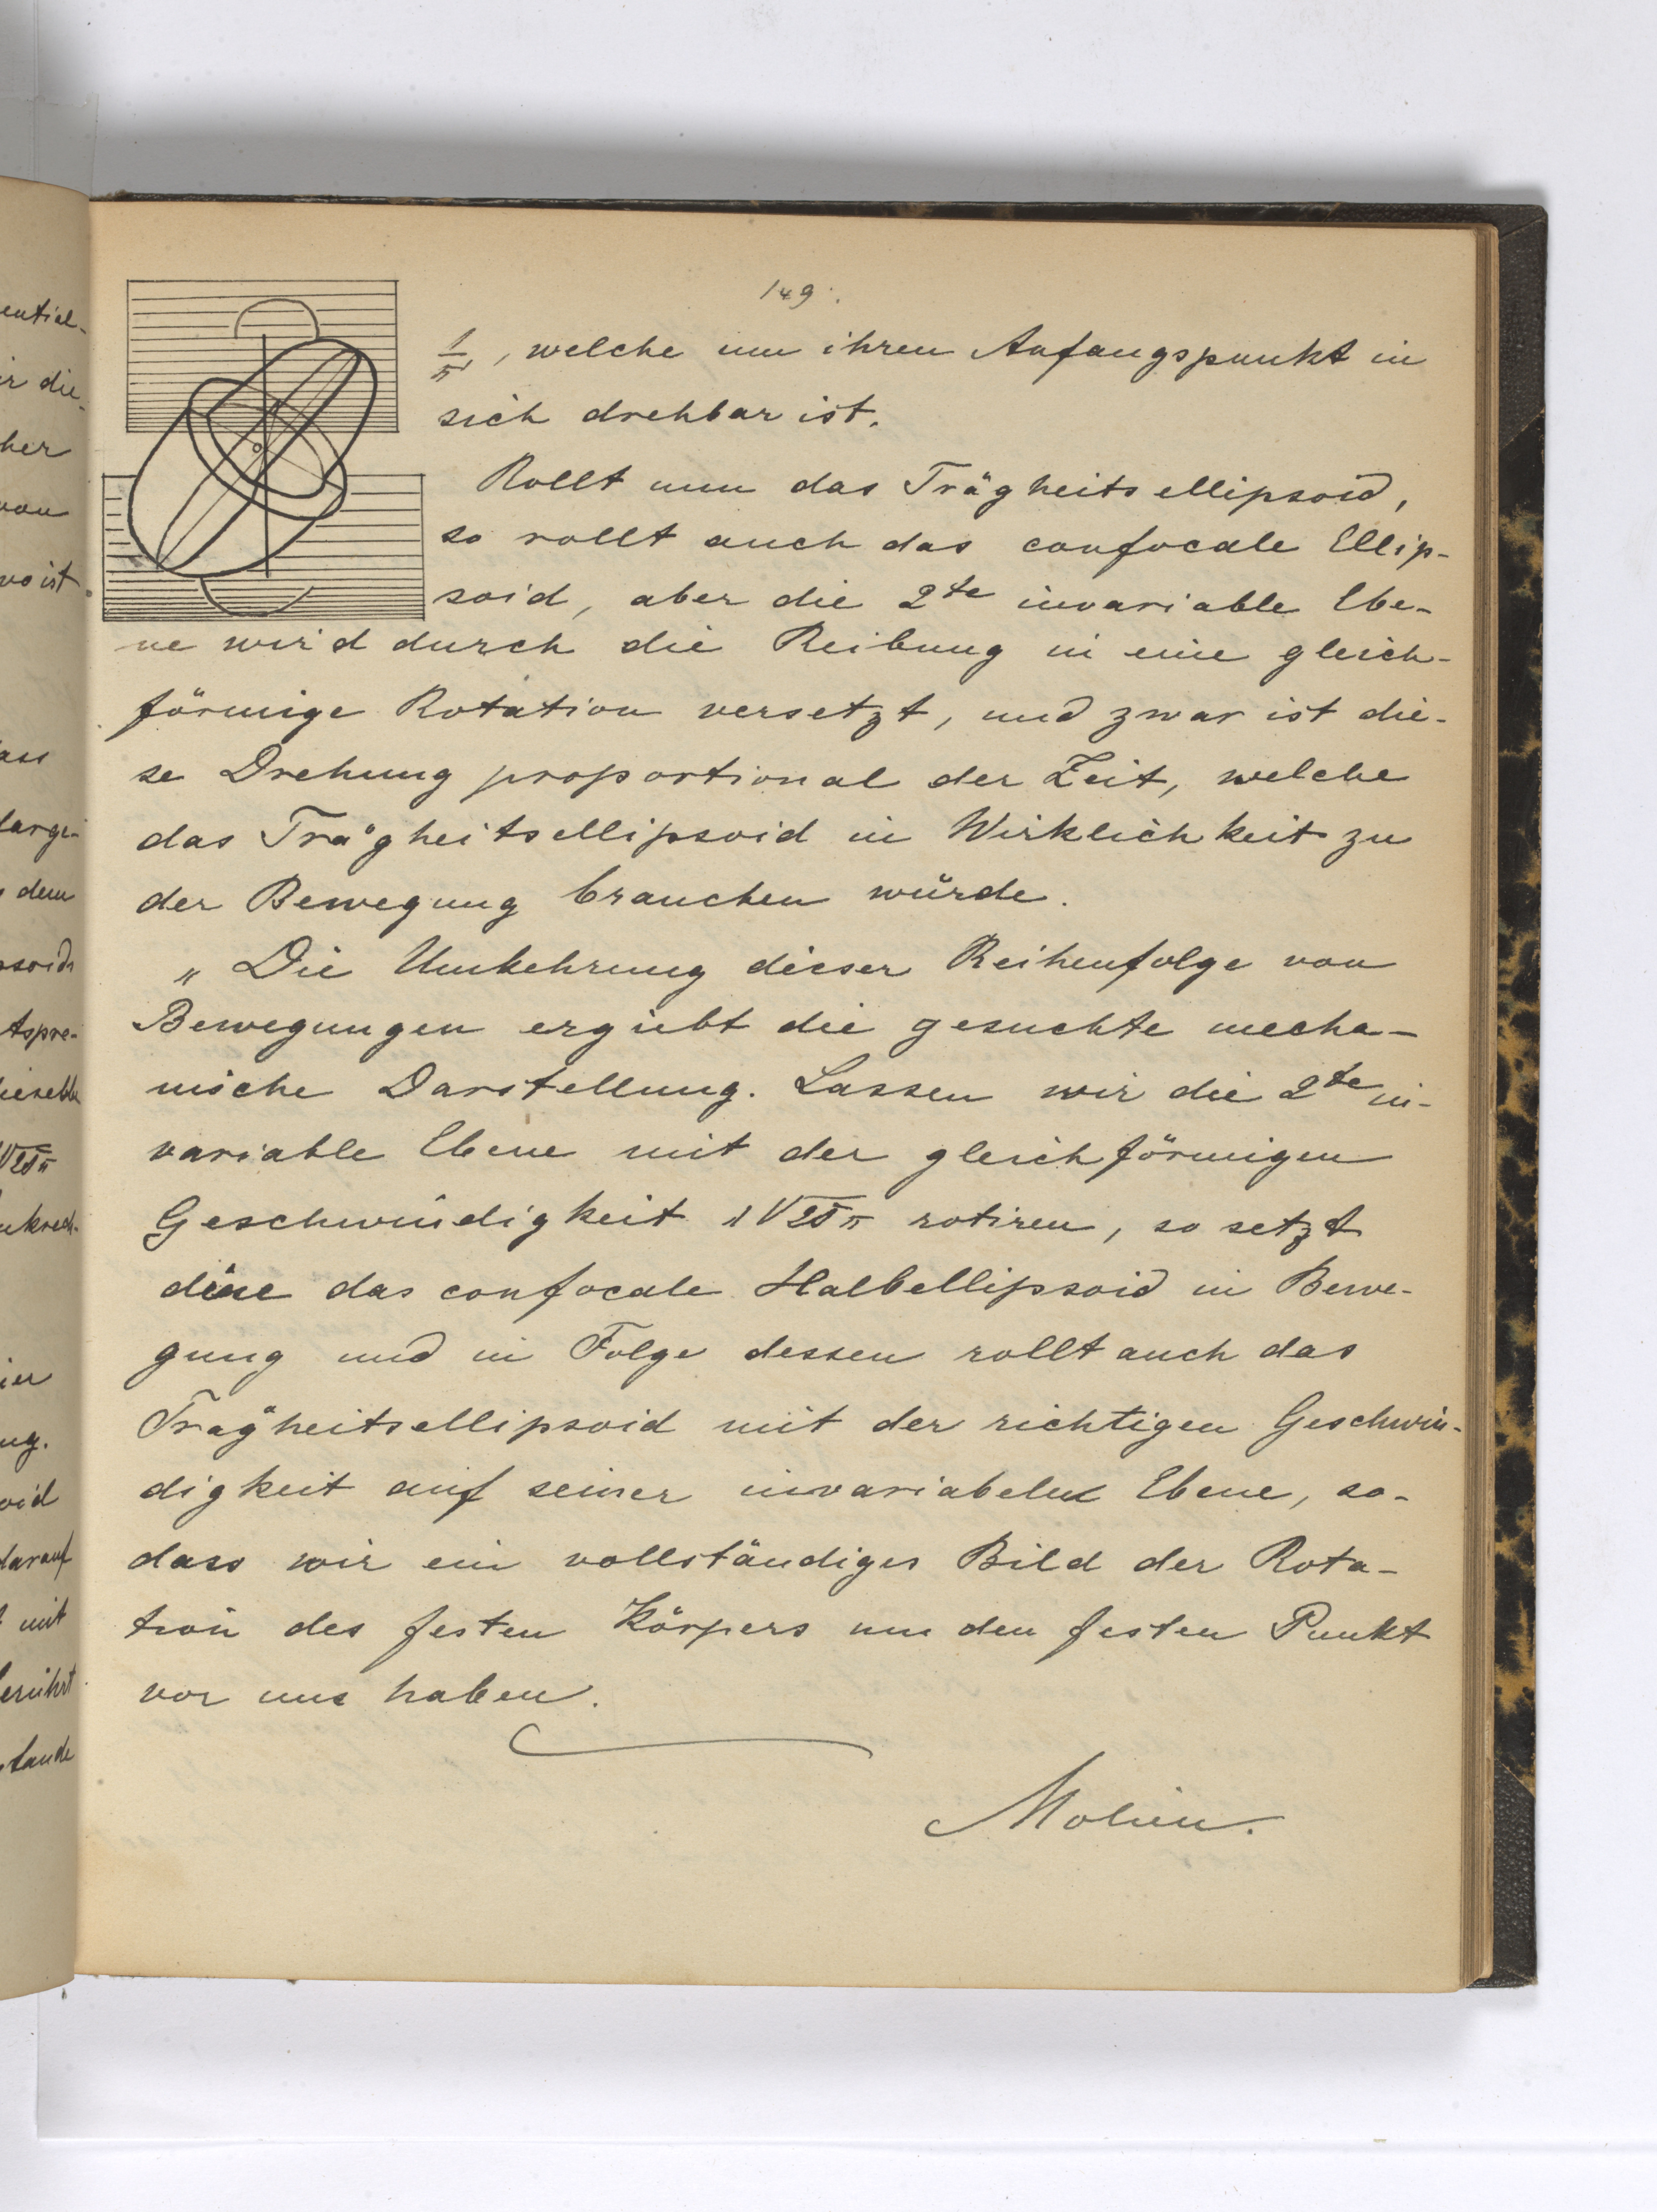 149.
1/π, welche um ihren Anfangspunkt in
sich drehbar ist.
Rollt nun das Trägheitsellipsoid,
so rollt auch das confocale Ellip-
soid, aber die 2te invariable Ebe-
ne wird durch die Reibung in eine gleich-
förmige Rotation versetzt, und zwar ist die-
se Drehung proportional der Zeit, welche
das Trägheitsellipsoid in Wirklichkeit zu
der Bewegung brauchen würde.
„Die Umkehrung dieser Reihenfolge von
Bewegungen ergiebt die gesuchte mecha-
nische Darstellung. Lassen wir die 2te in-
variable Ebene mit der gleichförmigen
Geschwindigkeit rotiren, so setzt
diese das confocale Halbellipsoid in Bewe-
gung und in Folge dessen rollt auch das
Trägheitsellipsoid mit der richtigen Geschwin-
digkeit auf seiner invariabelen Ebene, so-
dass wir ein vollständiges Bild der Rota-
tion des festen Körpers um den festen Punkt
vor uns haben.
Molien.
ential-
r die-
her
von
wo ist
ass
darge-
dem
psoids
tspre-
dieselbe
nkrech-
ier
ng.
oid
darauf
mit
berührt
stande